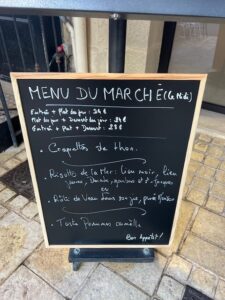 MENU DU MARCHÉ (Le Midi)
Entrée + Plat du jour : 24 €
Plat du jour + Dessert du jour : 24 €
Entrée + Plat + Dessert : 28 €
• Croquettes de thon.
• Risotto de la Mer : lieu noir, lieu
jaune, moules et St-Jacques
ou
• Rôti de Veau dans son jus, purée
• Tarte Pommes cannelle
Bon Appétit !